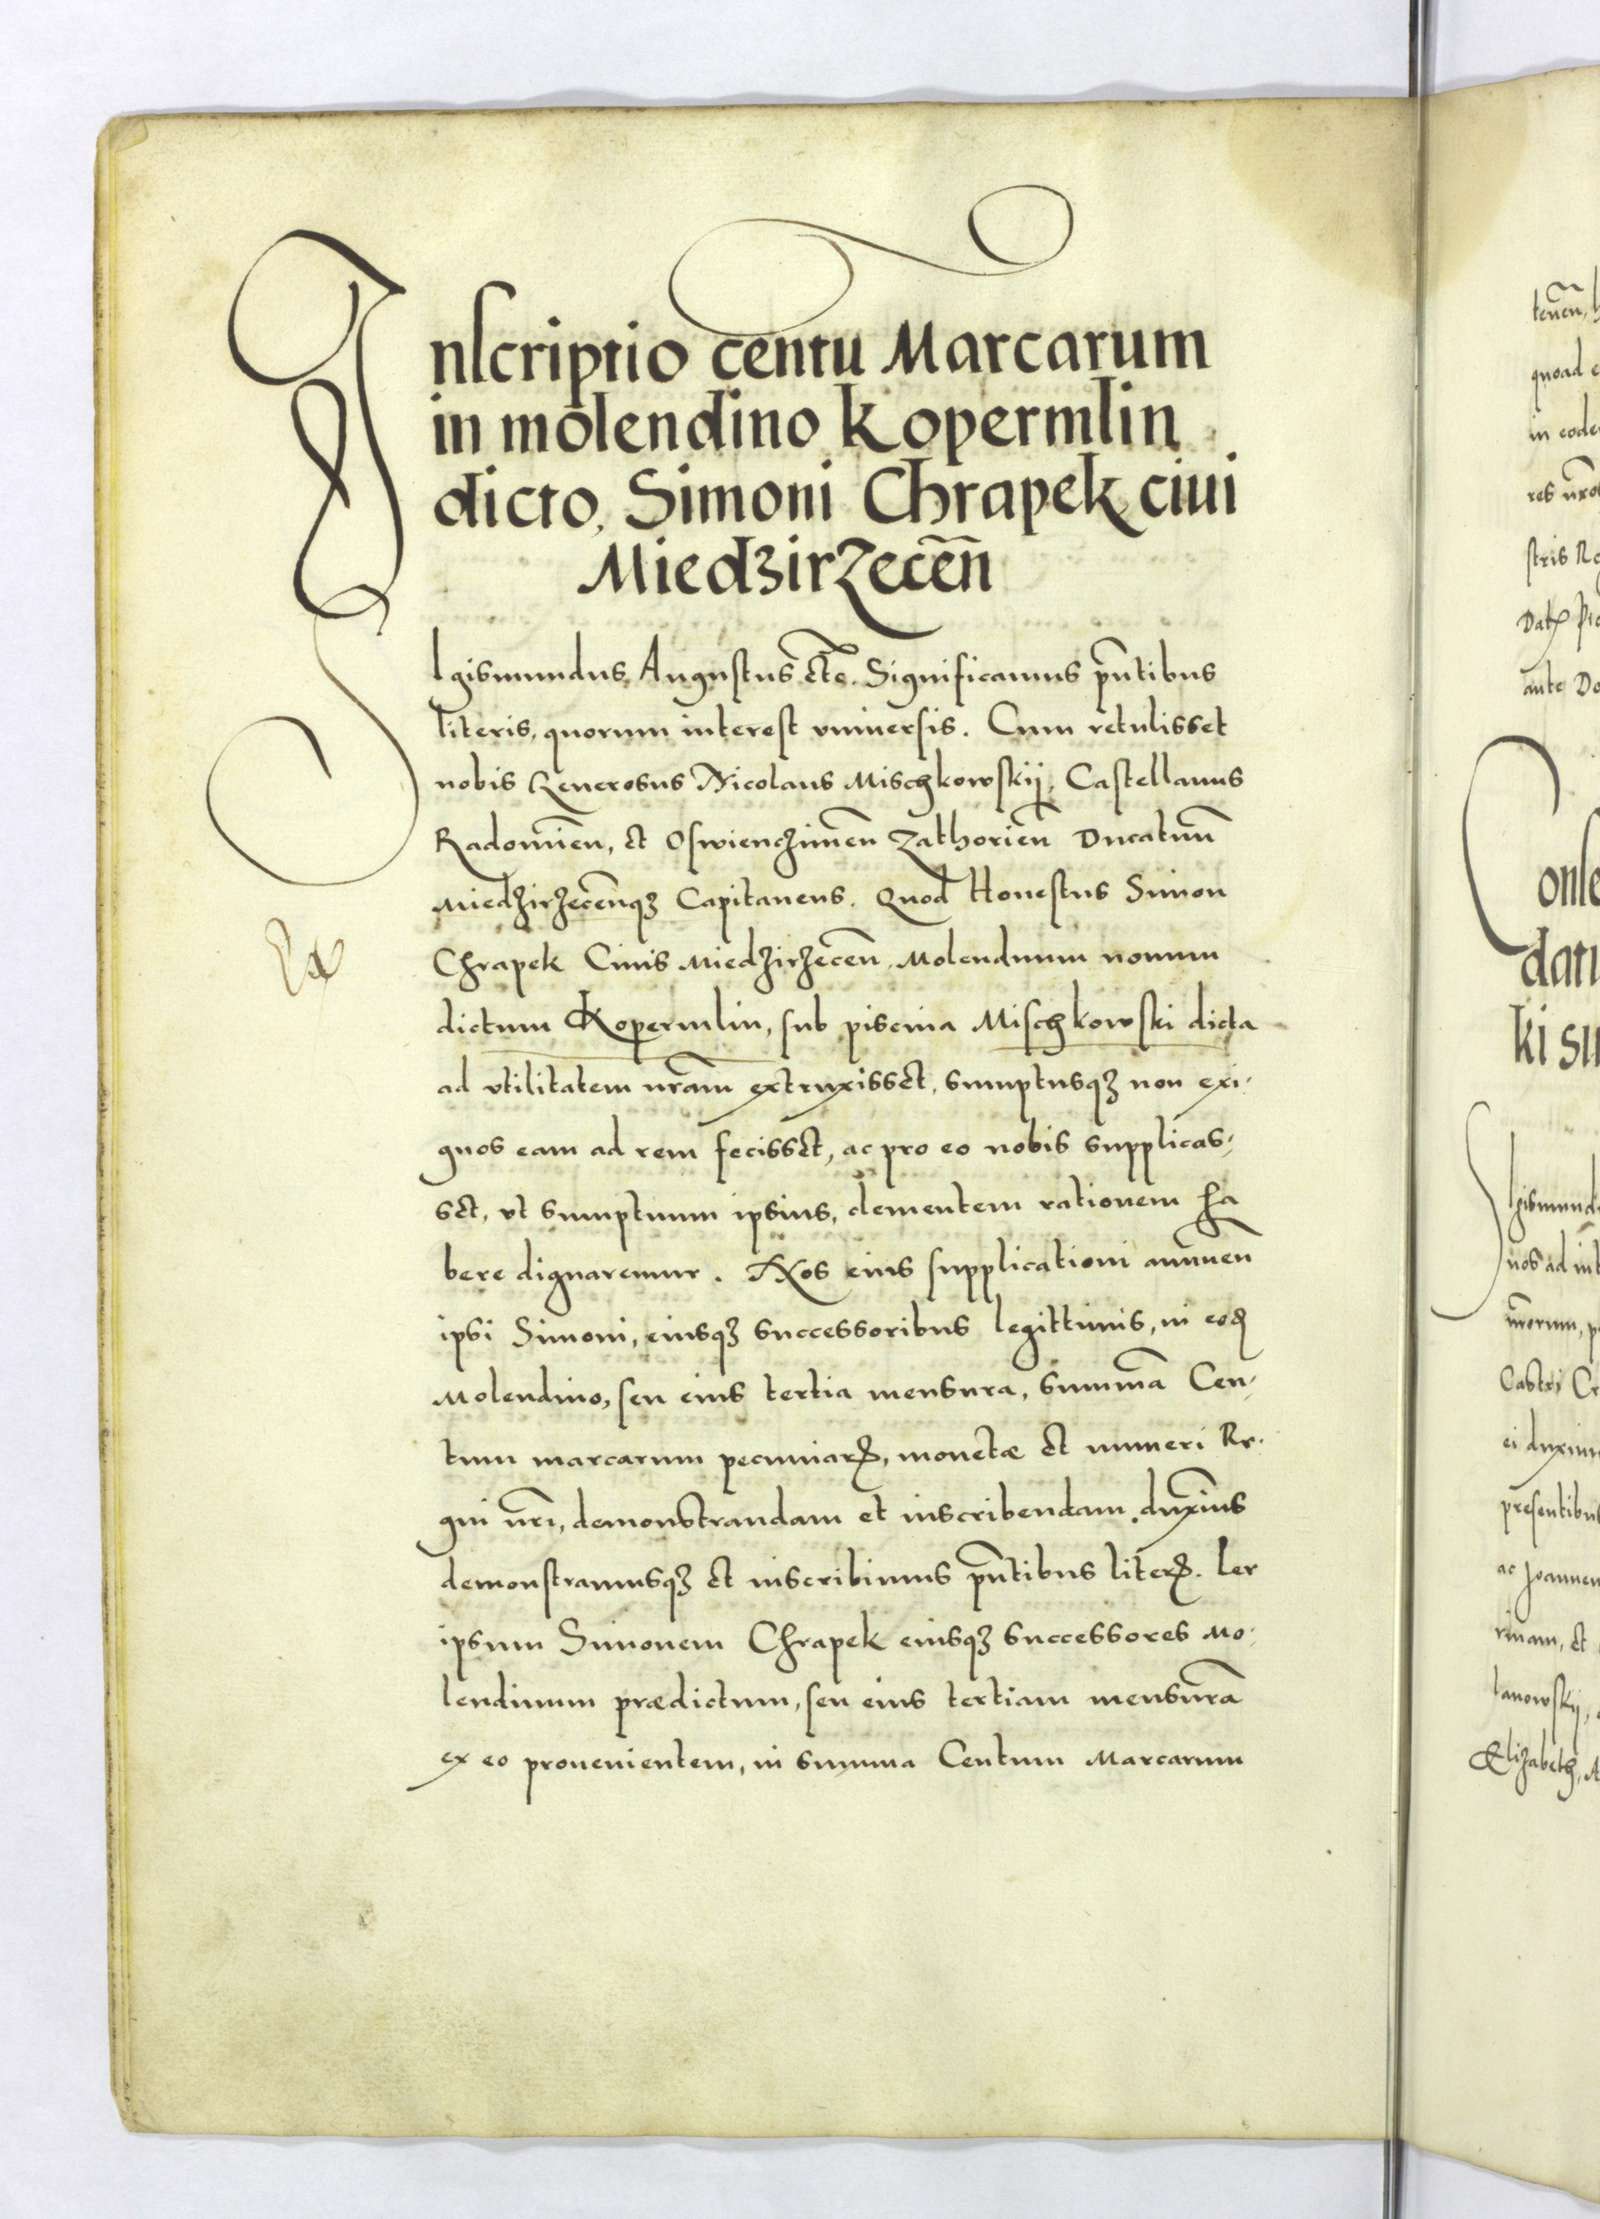 Inscriptio centu Marcarum
in molendino Kopermlin
dicto, Simoni Chrapek ciui
Miedzirzecēn̄
Sigismundus Augustus etc. Significamus pn̄tibus
literis, quorum interest vniuersis. Cum retulisset
nobis Generosus Nicolaus Mischkowskij, Castellanus
Radomien̄, et Oswienczimen̄ Zathorien̄ Ducatuū
Miedzirzecen̄qꝫ Capitaneus. Quod Honestus Simon
Chrapek Ciuis Miedzirzecen̄, Molendinum nouum
dictum Kopermlin, sub piscina Mischkowski dicta
ad vtilitatem nr̄am extruxisset, sumptusqꝫ non exi-
guos eam ad rem fecisset, ac pro eo nobis supplicas-
set, vt sumptuum ipsius, clementem rationem ha
bere dignaremur. Nos eius supplicationi annuen̄
ipsi Simoni, eiusqꝫ successoribus legittimis, in eodꝫ
Molendino, seu eius tertia mensura, summā Cen-
tum marcarum pecuniarꝝ, monetæ et numeri Re-
gni nr̄i, demonstrandam et inscribendam duximus
demonstramusqꝫ et inscribimus pn̄tibus literꝭ. Per
ipsum Simonem Chrapek eiusqꝫ successores Mo-
lendinum prædictum, seu eius tertiam mensurā
ex eo prouenientem, in summa Centum Marcarum
teneñ,
quoad
in
res
stris
ante Do
onse
datu
ki su
igismund
nos ad int
Castri Cr
ei duxim
presentibus
ac Joannem
rinam, et
lanowskij,
Elizabeth,